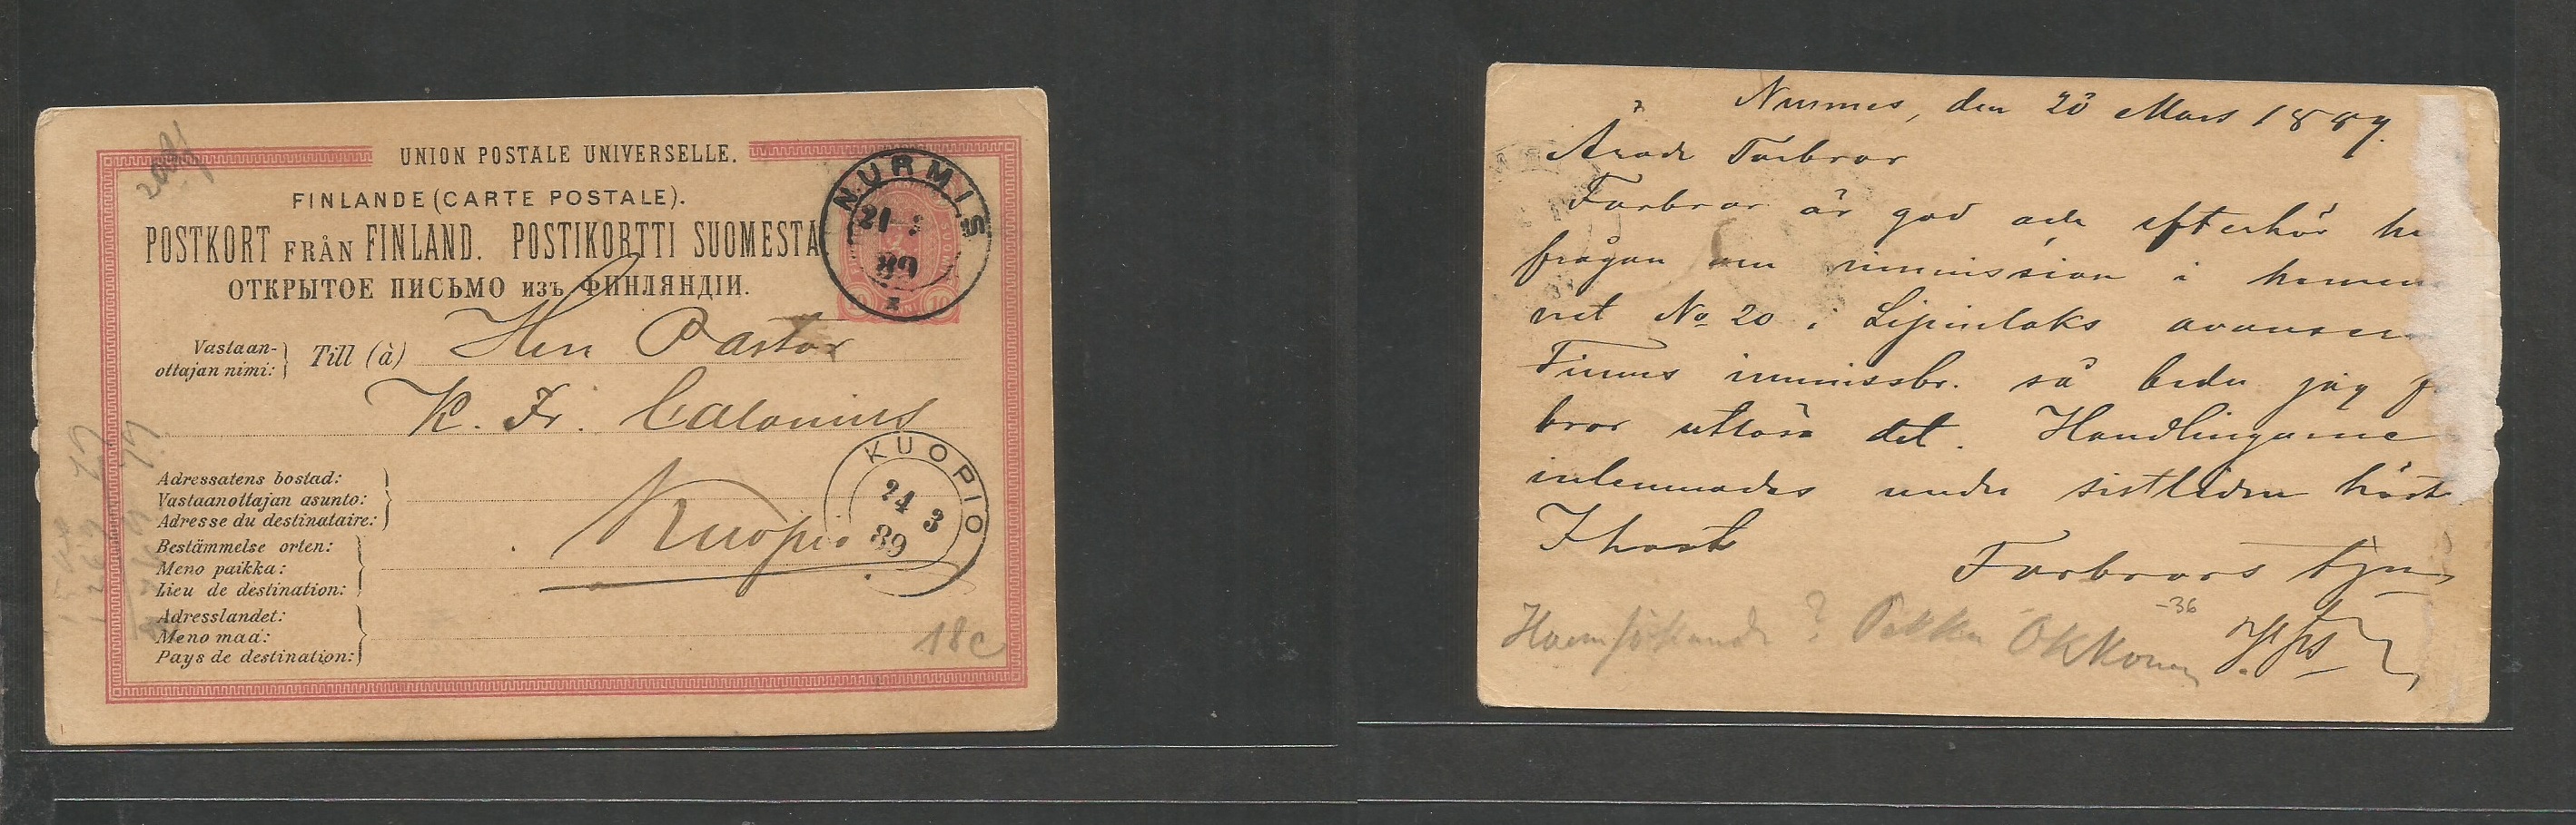 UNION POSTALE UNIVERSELLE.
FINLANDE (CARTE POSTALE).
POSTKORT FRÅN FINLAND. POSTIKORTTI SUOMESTA
ОТКРЫТОЕ ПИСЬМО изъ ФИНЛЯНДІИ.
NURMIS
21
89
10
Vastaan-
ottajan nimi:
Till (à)
Herr Pastor
K. Fr. Calonius
Kuopio
KUOPIO
24 3
89
Adressatens bostad:
Vastaanottajan asunto:
Adresse du destinataire:
Bestämmelse orten:
Meno paikka:
Lieu de destination:
Adresslandet:
Meno maa:
Pays de destination:
18c
Nurmes, den 20 Mars 1889.
Ärade Farbror
Farbror är god och efterhör
frågan om immission i hemman
net No 20 i Lipinlaks
Finns immissbr. så beder jag
bror utlösa det. Handlingarne
inlemnades under sistliden höst
I hast
Farbrors
-36
? Pekka Okkonen